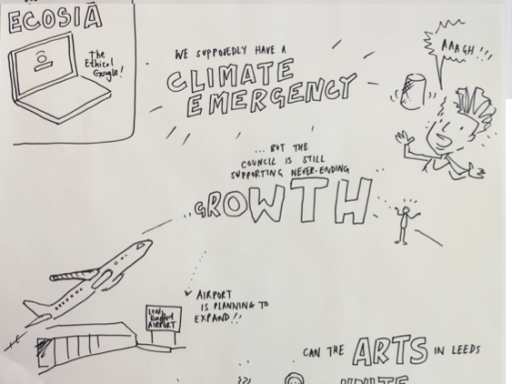 ECOSIA
The
Ethical
Google!
WE SUPPOSEDLY HAVE A
CLIMATE
EMERGENCY
AAAGH!!!
... BUT THE
COUNCIL IS STILL
SUPPORTING NEVER-ENDING
GROWTH
AIRPORT
IS PLANNING TO
EXPAND!!
Leeds
Bradford
AIRPORT
CAN THE ARTS IN LEEDS